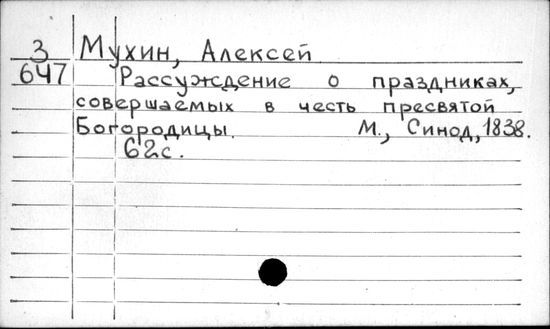 3 Мухин, Алексей
647 Рассуждение о праздниках,
совершаемых в честь пресвятой
Богородицы. М., Синод, 1838.
62с.